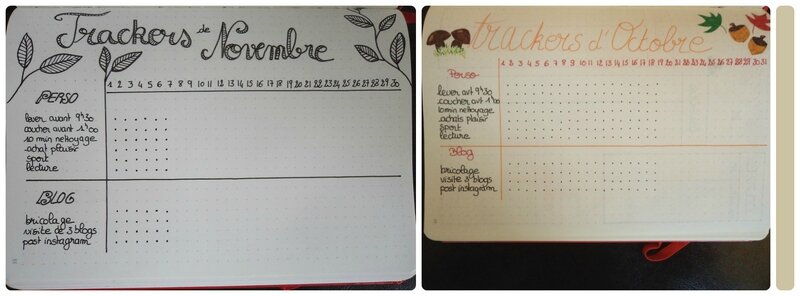 Trackers de Novembre
1 2 3 4 5 6 7 8 9 10 11 12 13 14 15 16 17 18 19 20 21 22 23 24 25 26 27 28 29 30
PERSO
lever avant 9h30
coucher avant 1h00
10 min nettoyage
achat plaisir
sport
lecture
BLOG
bricolage
visite de 3 blogs
post instagram
trackers d'Octobre
Perso
1 2 3 4 5 6 7 8 9 10 11 12 13 14 15 16 17 18 19 20 21 22 23 24 25 26 27 28 29 30 31
lever avt 9h30
coucher avt 1h00
10min nettoyage
achats plaisir
sport
lecture
Blog
bricolage
visite 3 blogs
post instagram